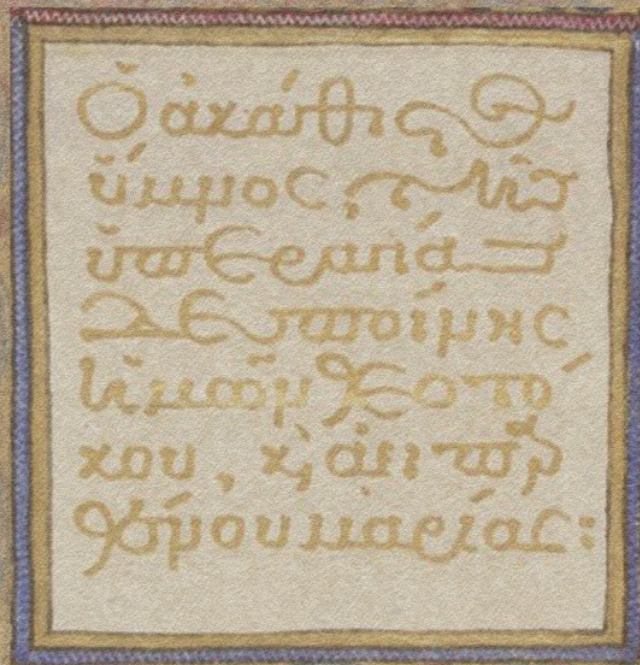 Ὁ ἀκάθιϛος
ὕμνος τῆς
ὑπεραγίας
δεσποίνης
ἡμῶν θεοτό
κου, κ̀ ἀειπαρ
θένου μαρίας: